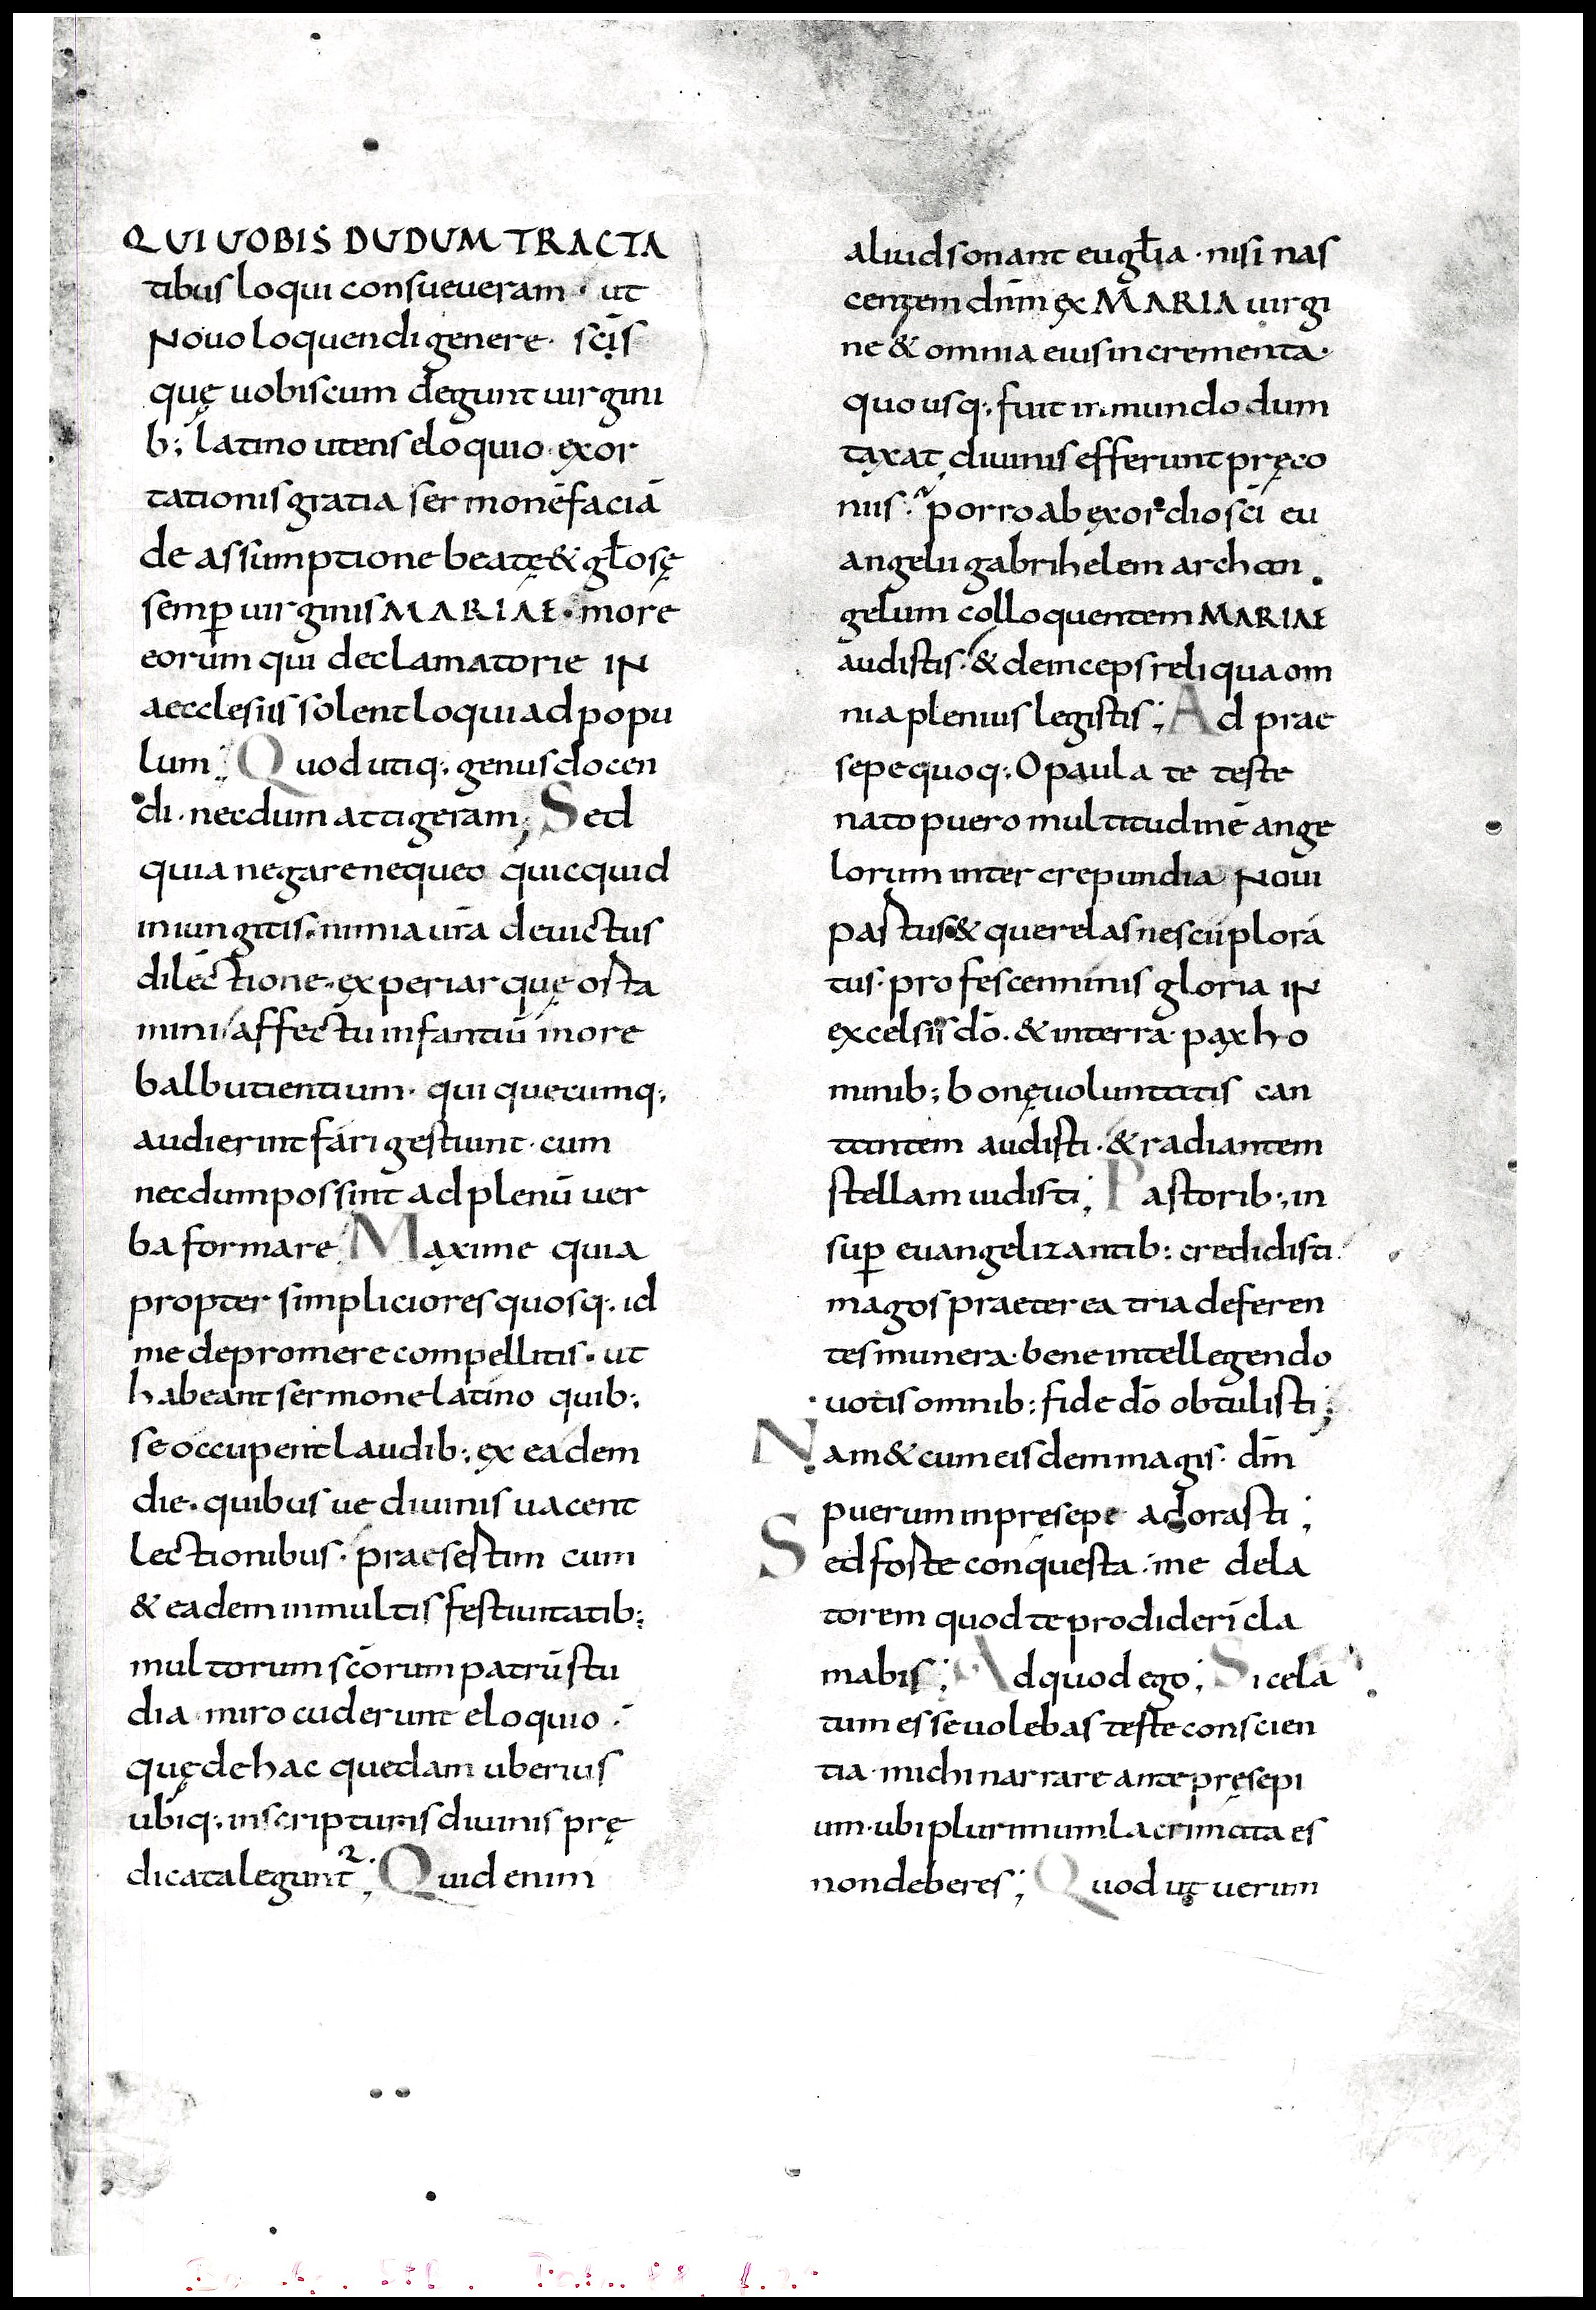 QUI UOBIS DUDUM TRACTA
tibus loqui consueueram · ut
Nouo loquendi genere · scīs
quę uobiscum degunt uirgini
b; latino utens eloquio · exor
tationis gratia sermonē faciā
de assumptione beatę & gl̄osę
semp̄ uirginis MARIAE · more
eorum qui declamatorie IN
aecclesiis solent loqui ad popu
lum; Quod utiq; genus docen
di · necdum attigeram; Sed
quia negare nequeo quicquid
iniungitis · nimia ur̄a deuictus
dilectione · experiar quę osta
mini affectu infantiū more
balbutientium · qui quecumq;
audierint fari gestiunt · cum
necdum possint ad plenū uer
ba formare Maxime quia
propter simpliciores quosq; id
me depromere compellitis · ut
habeant sermone latino quib;
se occupent laudib; ex eadem
die · quibus ue diuinis uacent
lectionibus · praesestim cum
& eadem in multis festiuitatib;
multorum scōrum patrū stu
dia miro cuderunt eloquio ·
quę de hac quedam uberius
ubiq; in scripturis diuinis prę
dicata legunt²; Quid enim
aliud sonant eugl̄ia · nisi nas
centem dn̄m ex MARIA uirgi
ne & omnia eius incrementa ·
quo usq; fuit in mundo dum
taxat diuinis efferunt pręco
niis · porro ab exordio scī eu
angelii gabrihelem archan
gelum colloquentem MARIAE
audistis · & deinceps reliqua om
nia plenius legistis; Ad prae
sepe quoq; O paula te teste
nato puero multitudinē ange
lorum inter crepundia Noui
partus & querelas nescii plora
tus · pro fescenninis gloria IN
excelsis dō · & in terra pax ho
minib; bonę uoluntatis can
tantem audisti · & radiantem
stellam uidisti; Pastorib; in
sup̄ euangelizantib; credidisti
magos praeterea tria deferen
tes munera · bene intellegendo
uotis omnib; fide dō obtulisti;
Nam & cum eisdem magis · dn̄m
puerum in pręsepe adorasti;
Sed foste conquesta · me dela
torem quod te prodiderī cla
mabis; Ad quod ego; Si cela
tum esse uolebas teste conscien
tia · michi narrare ante pręsepi
um · ubi plurimum lacrimata es
non deberes; Quod ut uerum